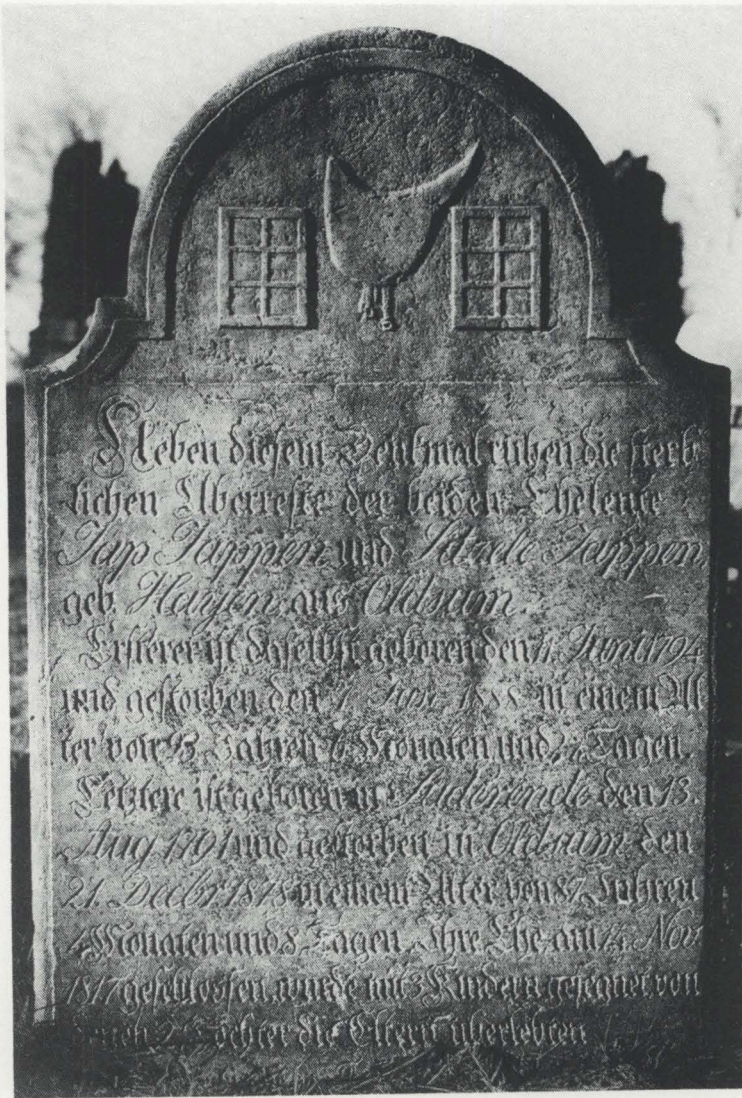 Neben diesem Denkmal ruhen die sterb-
lichen Uberreste der beiden Eheleute
Jap Jappen und Jappen
geb. Hayen aus Oldsum.
Ersterer ist daselbst geboren den Juni 1794
und gestorben den 1888 in einem Al
ter von 93 Jahren 6 Monaten und Tagen.
Letztere ist geboren in Süderende den 13.
Aug 1791 und gestorben in Oldsum den
21. Decbr 1878 in einem Alter von 87 Jahren
4 Monaten und 8 Tagen. Ihre Ehe am 14. Nov.
1817 geschlossen wurde mit 3 Kindern gesegnet von
denen 2 Töchter die Eltern überlebten